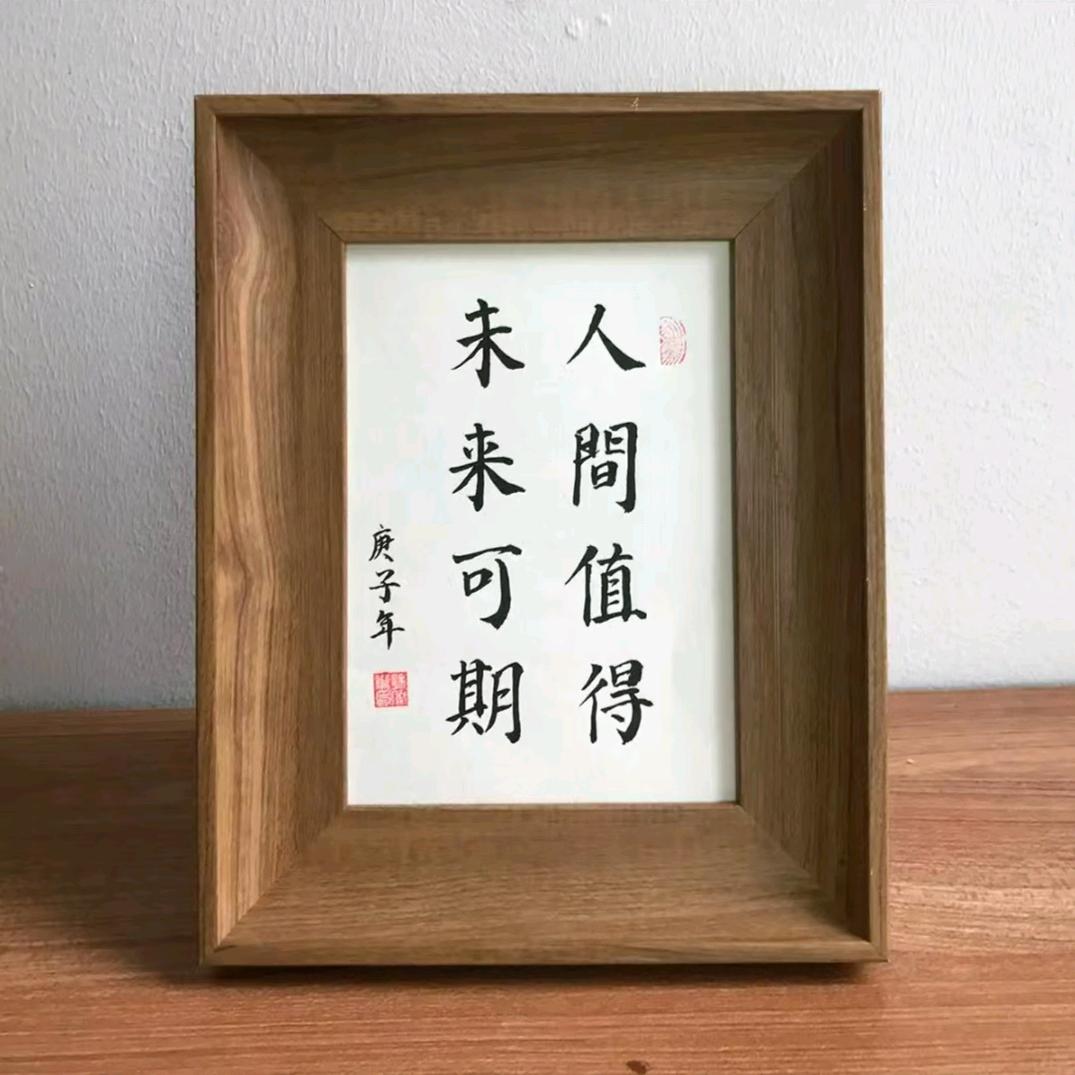 人間值得
未来可期
庚子年